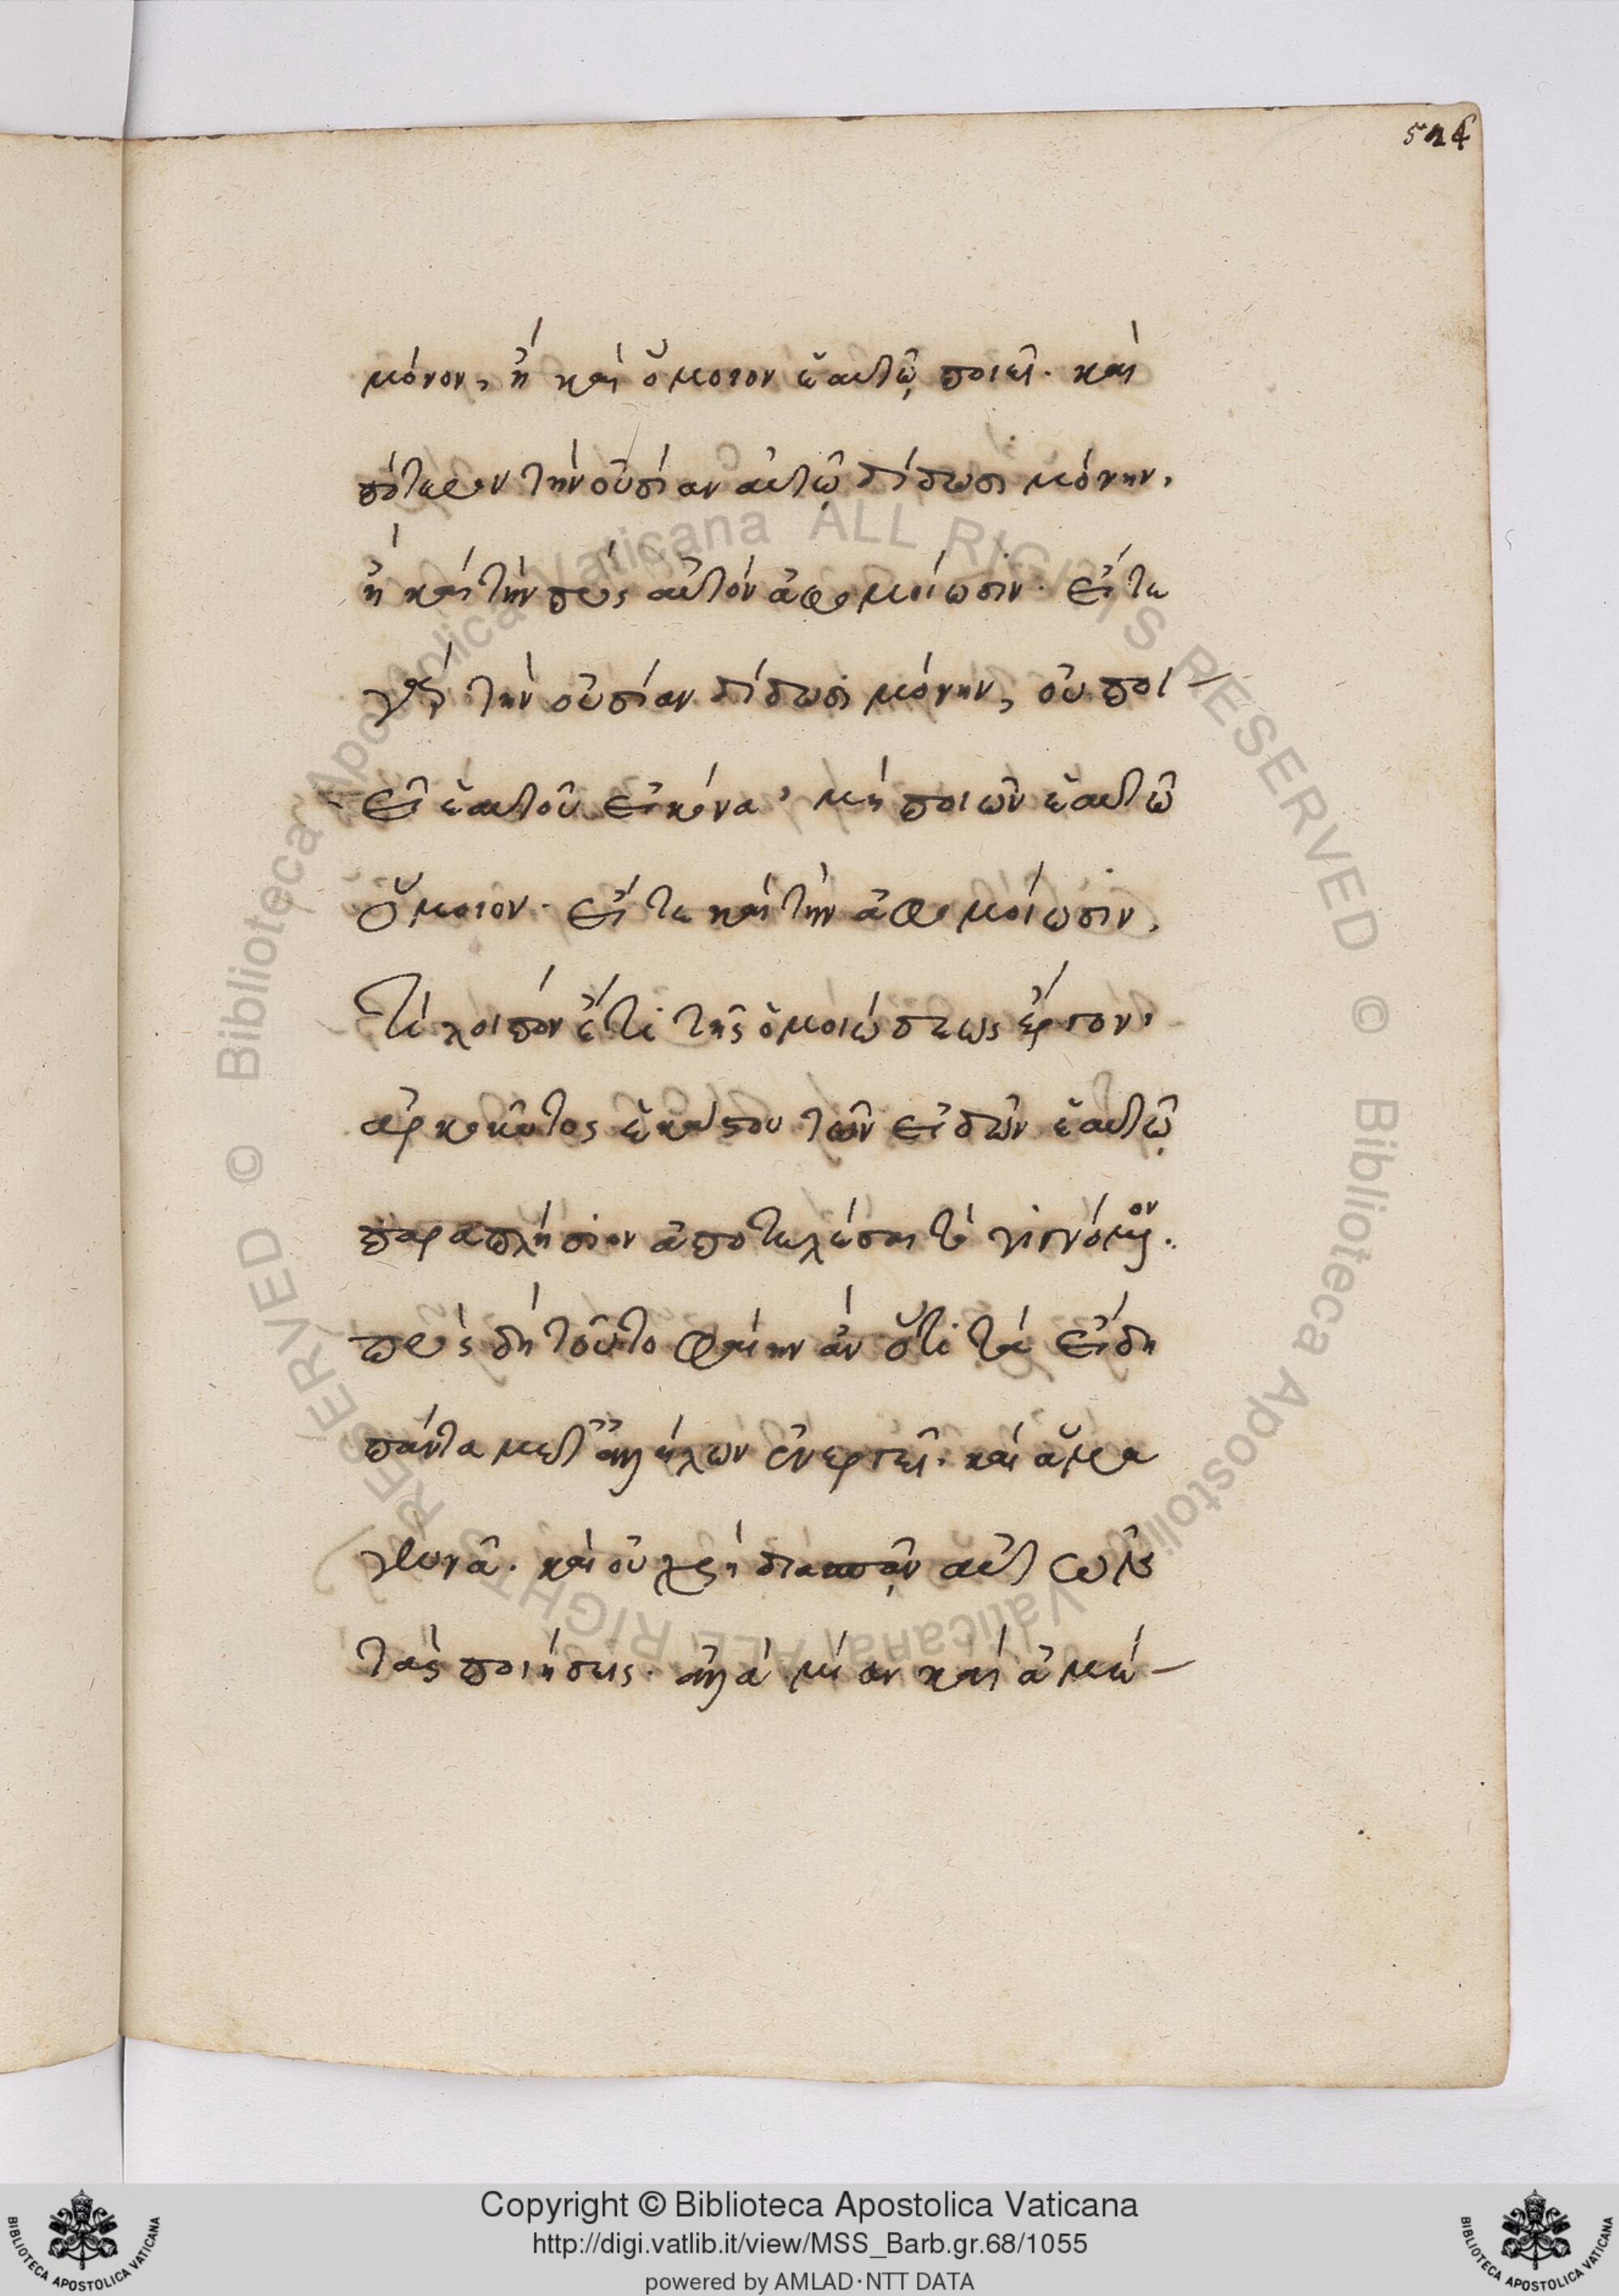 524
μόνον, ἢ καὶ ὅμοιον ἑαυτῷ ποιεῖ. καὶ
πότερον τὴν οὐσίαν αὐτῷ δίδωσι μόνην,
ἢ καὶ τὴν πρὸς αὐτὸν ἀφομοίωσιν. εἴτε
γὰρ τὴν οὐσίαν δίδωσι μόνην, οὐ ποι-
εῖ ἑαυτοῦ εἰκόνα, μὴ ποιῶν ἑαυτῷ
ὅμοιον. εἴτε καὶ τὴν ἀφομοίωσιν,
τί λοιπὸν ἔτι τῆς ὁμοιώσεως ἔργον,
ἀρκοῦντος ἑκάστου τῶν εἰδῶν ἑαυτῷ
παραπλήσιον ἀποτελέσαι τὸ γιγνόμενον.
πρὸς δὴ τοῦτο φαίην ἂν ὅτι τὰ εἴδη
πάντα μετ' ἀλλήλων ἐνεργεῖ. καὶ ἅμα
γεννᾷ. καὶ οὐ χρὴ διασπᾶν αὐτῶν
τὰς ποιήσεις. ἀλλὰ μίαν καὶ ἀμέ-
© Biblioteca Apostolica Vaticana ALL RIGHTS RESERVED © Biblioteca Apostolica Vaticana, ALL RIGHTS RESERVED
Copyright © Biblioteca Apostolica Vaticana
http://digi.vatlib.it/view/MSS_Barb.gr.68/1055
powered by AMLAD·NTT DATA
BIBLIOTECA APOSTOLICA VATICANA
BIBLIOTECA APOSTOLICA VATICANA